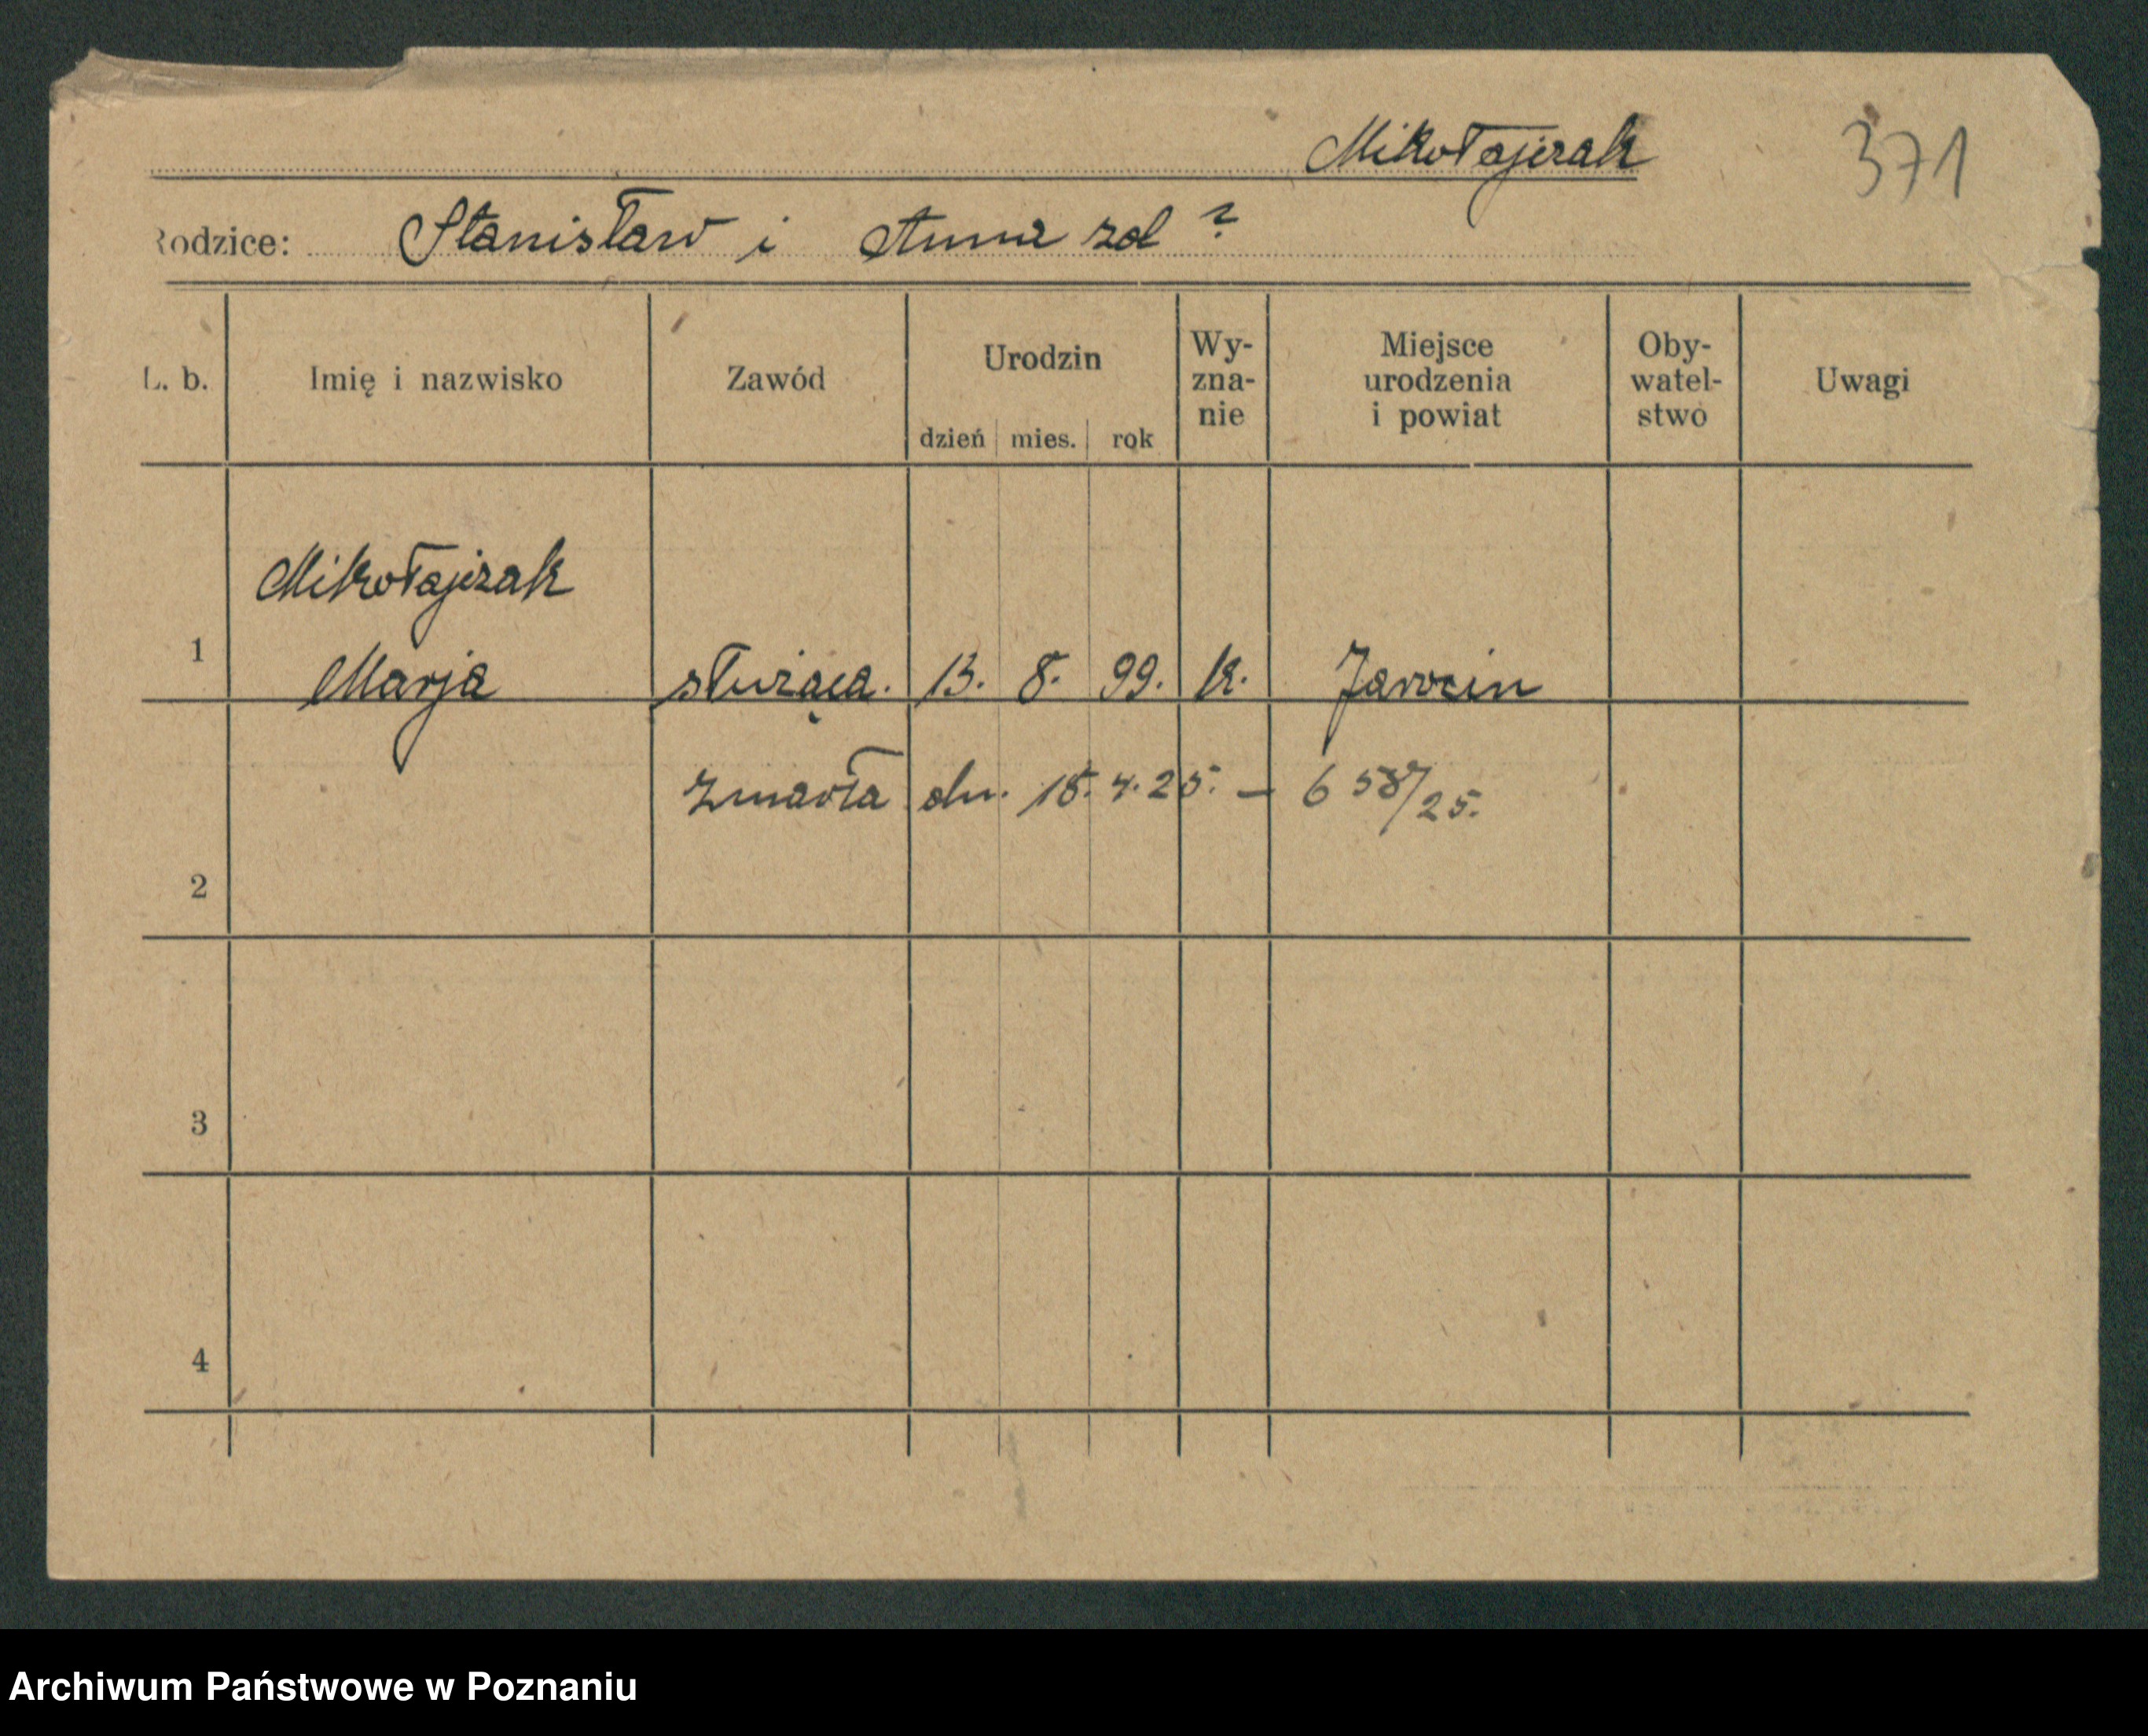 Mikołajczak 371
Rodzice: Stanisław i Anna zd ?
L. b. Imię i nazwisko Zawód Urodzin dzień mies. rok Wy-zna-nie Miejsce urodzenia i powiat Oby-watel-stwo Uwagi
Mikołajczak
1 Marja służąca. 13. 8. 99. k. Jarocin
zmarła dn. 18. 4. 25. – 658/25.
2
3
4
Archiwum Państwowe w Poznaniu